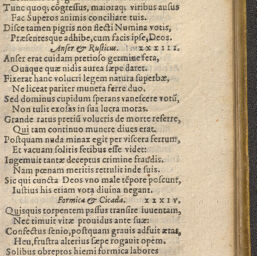 Tunc quoq; cõgressus, maioraq́; viribus ausus
Fac Superos animis conciliare tuis.
Disce tamen pigris non flecti Numina votis,
Præsentesque adhibe, cum facis ipse, Deos.
Anser & Rusticus. XXXIII.
Anser erat cuidam pretioso germine feta,
Ouaque quæ nidis aurea sæpe daret.
Fixerat hanc volucri legem natura superbæ,
Ne liceat pariter munera ferre duo.
Sed dominus cupidum sperans vanescere votũ,
Non tulit exosas in sua lucra moras.
Grande ratus pretiũ volucris de morte referre,
Qui tam continuo munere diues erat.
Postquam nuda minax egit per viscera ferrum,
Et vacuam solitis fetibus esse videt:
Ingemuit tantæ deceptus crimine fraudis.
Nam pœnam meritis rettulit inde suis.
Sic qui cuncta Deos vno male tẽpore poscunt,
Iustius his etiam vota diuina negant.
Formica & Cicada. XXXIV.
Quisquis torpentem passus transire iuuentam,
Nec timuit vitæ prouidus ante suæ:
Confectus senio, postquam grauis adfuit ætas,
Heu, frustra alterius sæpe rogauit opem.
Solibus obreptos hiemi formica labores